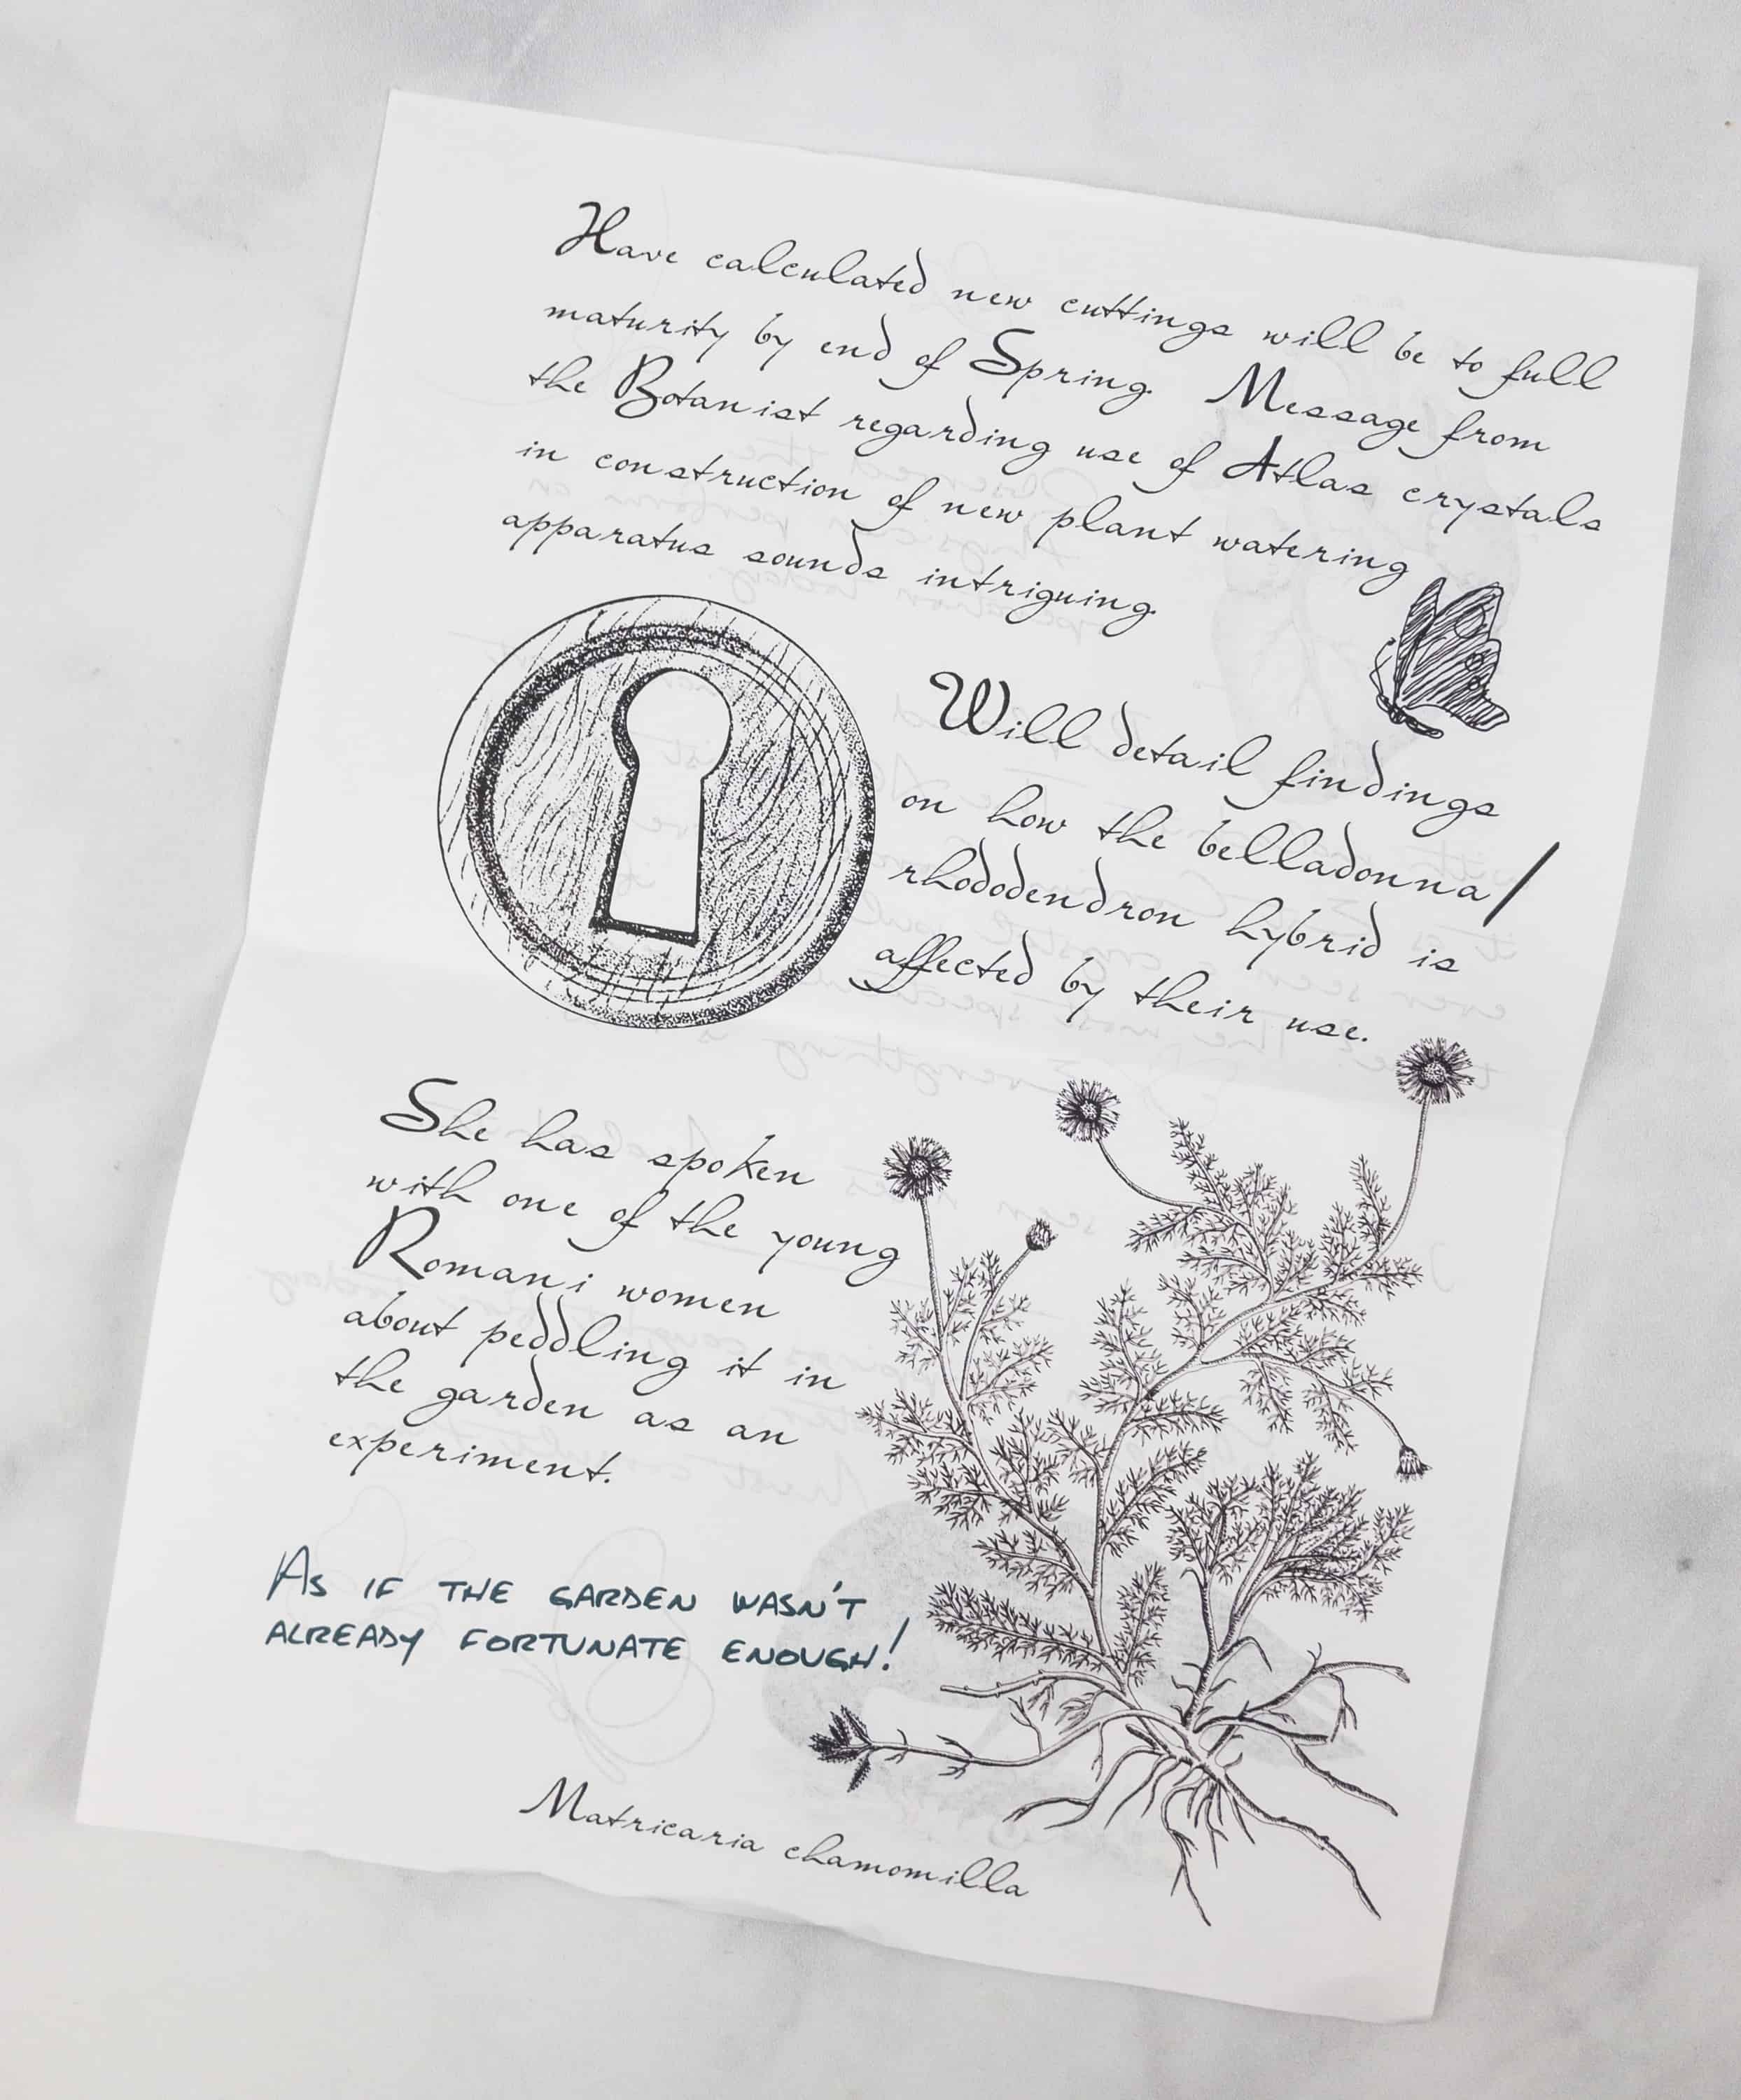 Have calculated new cuttings will be to full
maturity by end of Spring. Message from
the Botanist regarding use of Atlas crystals
in construction of new plant watering
apparatus sounds intriguing.
Will detail findings
on how the belladonna/
rhododendron hybrid is
affected by their use.
She has spoken
with one of the young
Romani women
about peddling it in
the garden as an
experiment.
AS IF THE GARDEN WASN'T
ALREADY FORTUNATE ENOUGH!
Matricaria chamomilla